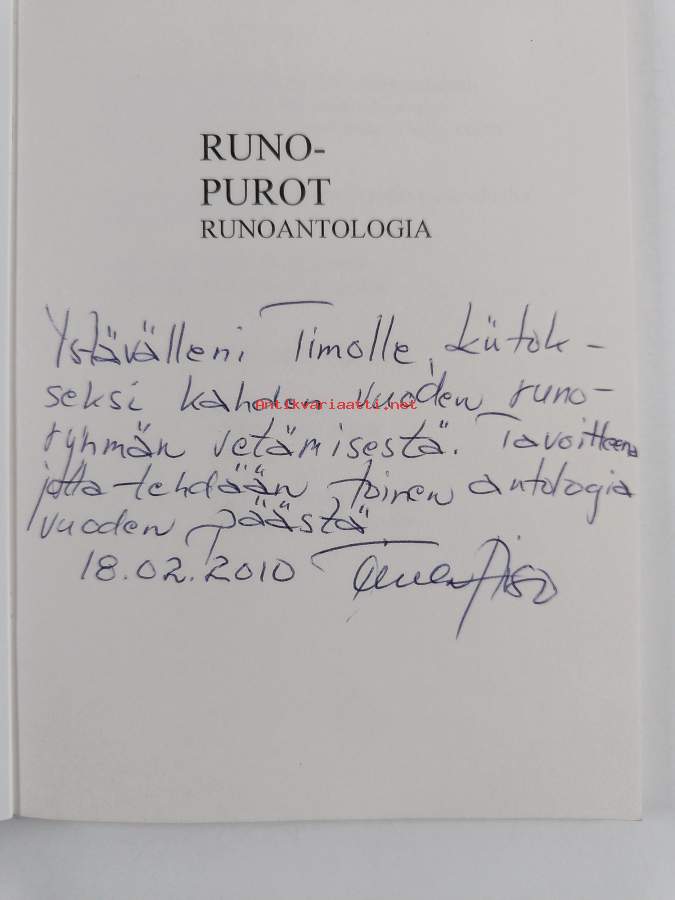 RUNO-
PUROT
RUNOANTOLOGIA
Ystävälleni Timolle, kiitok-
seksi kahden vuoden runo-
Antikvariaatti.net
ryhmän vetämisestä. Tavoitteena
jotta tehdään toinen antologia
vuoden päästä
18.02.2010